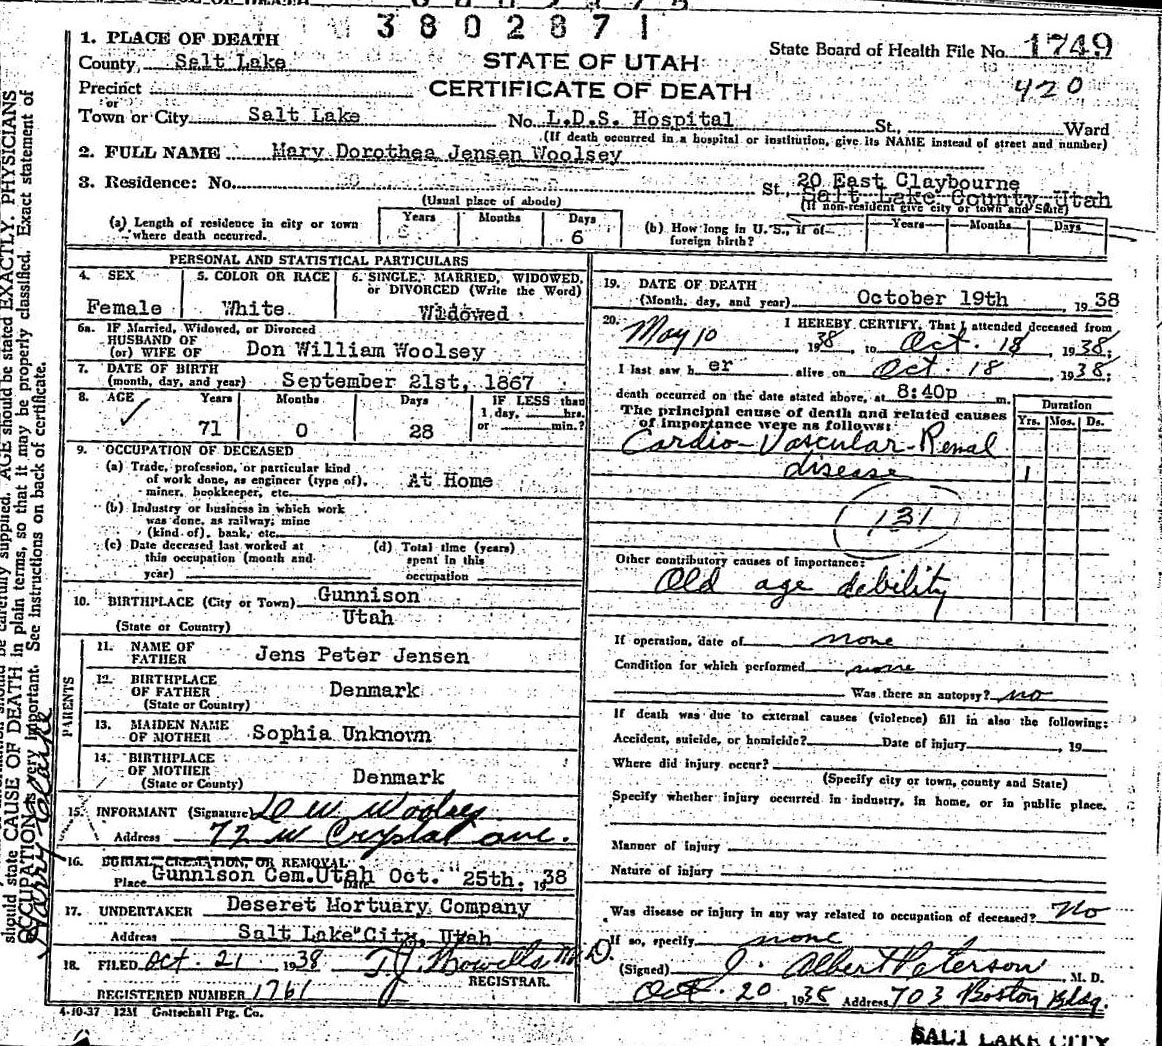 3802871
1. PLACE OF DEATH
State Board of Health File No. 1749
County, Salt Lake
STATE OF UTAH
Precinct
CERTIFICATE OF DEATH
420
or
Town or City Salt Lake No. L.D.S. Hospital St., Ward
(If death occurred in a hospital or institution, give its NAME instead of street and number)
2. FULL NAME Mary Dorothea Jensen Woolsey
3. Residence: No. St., 20 East Claybourne
Salt Lake County Utah
(Usual place of abode)
(If non-resident give city or town and State)
(a) Length of residence in city or town where death occurred. Years Months Days 6
(b) How long in U. S., if of foreign birth? Years Months Days
PERSONAL AND STATISTICAL PARTICULARS
4. SEX Female
5. COLOR OR RACE White
6. SINGLE, MARRIED, WIDOWED, or DIVORCED (Write the Word) Widowed
6a. IF Married, Widowed, or Divorced
HUSBAND OF
(or) WIFE OF Don William Woolsey
7. DATE OF BIRTH
(month, day, and year) September 21st, 1867
8. AGE Years Months Days IF LESS than
1 day, hrs.
71 0 28 or min.?
9. OCCUPATION OF DECEASED
(a) Trade, profession, or particular kind
of work done, as engineer (type of),
miner, bookkeeper, etc. At Home
(b) Industry or business in which work
was done, as railway, mine
(kind of), bank, etc.
(c) Date deceased last worked at
this occupation (month and
year)
(d) Total time (years)
spent in this
occupation
10. BIRTHPLACE (City or Town) Gunnison
(State or Country) Utah
PARENTS
11. NAME OF
FATHER Jens Peter Jensen
12. BIRTHPLACE
OF FATHER Denmark
(State or Country)
13. MAIDEN NAME
OF MOTHER Sophia Unknown
14. BIRTHPLACE
OF MOTHER
(State or County) Denmark
15. INFORMANT (Signature) D W Woolsey
Address 72 W Crystal ave.
16. BURIAL, CREMATION, OR REMOVAL
Place Gunnison Cem. Utah Date Oct. 25th. 1938
17. UNDERTAKER Deseret Mortuary Company
Address Salt Lake City, Utah
18. FILED Oct. 21 1938 T J Howells M.D.
REGISTRAR.
REGISTERED NUMBER 1761
4-10-37 12M Gottschall Ptg. Co.
19. DATE OF DEATH
(Month, day, and year) October 19th 1938
20. I HEREBY CERTIFY, That I attended deceased from
May 10, 1938, to Oct. 18, 1938;
I last saw her alive on Oct. 18, 1938;
death occurred on the date stated above, at 8:40p m.
The principal cause of death and related causes
of importance were as follows:
Duration
Yrs. Mos. Ds.
Cardio-Vascular-Renal
disease 1
131
Other contributory causes of importance:
Old age debility
If operation, date of none
Condition for which performed none
Was there an autopsy? no
If death was due to external causes (violence) fill in also the following:
Accident, suicide, or homicide? Date of injury , 19
Where did injury occur?
(Specify city or town, county and State)
Specify whether injury occurred in industry, in home, or in public place.
Manner of Injury
Nature of injury
Was disease or injury in any way related to occupation of deceased? No
If so, specify none
(Signed) J. Albert Peterson M. D.
Oct. 20 1938 Address 703 Boston Bldg.
SALT LAKE CITY
should be carefully supplied. AGE should be stated EXACTLY. PHYSICIANS
should state CAUSE OF DEATH in plain terms, so that it may be properly classified. Exact statement of
OCCUPATION is very important. See instructions on back of certificate.